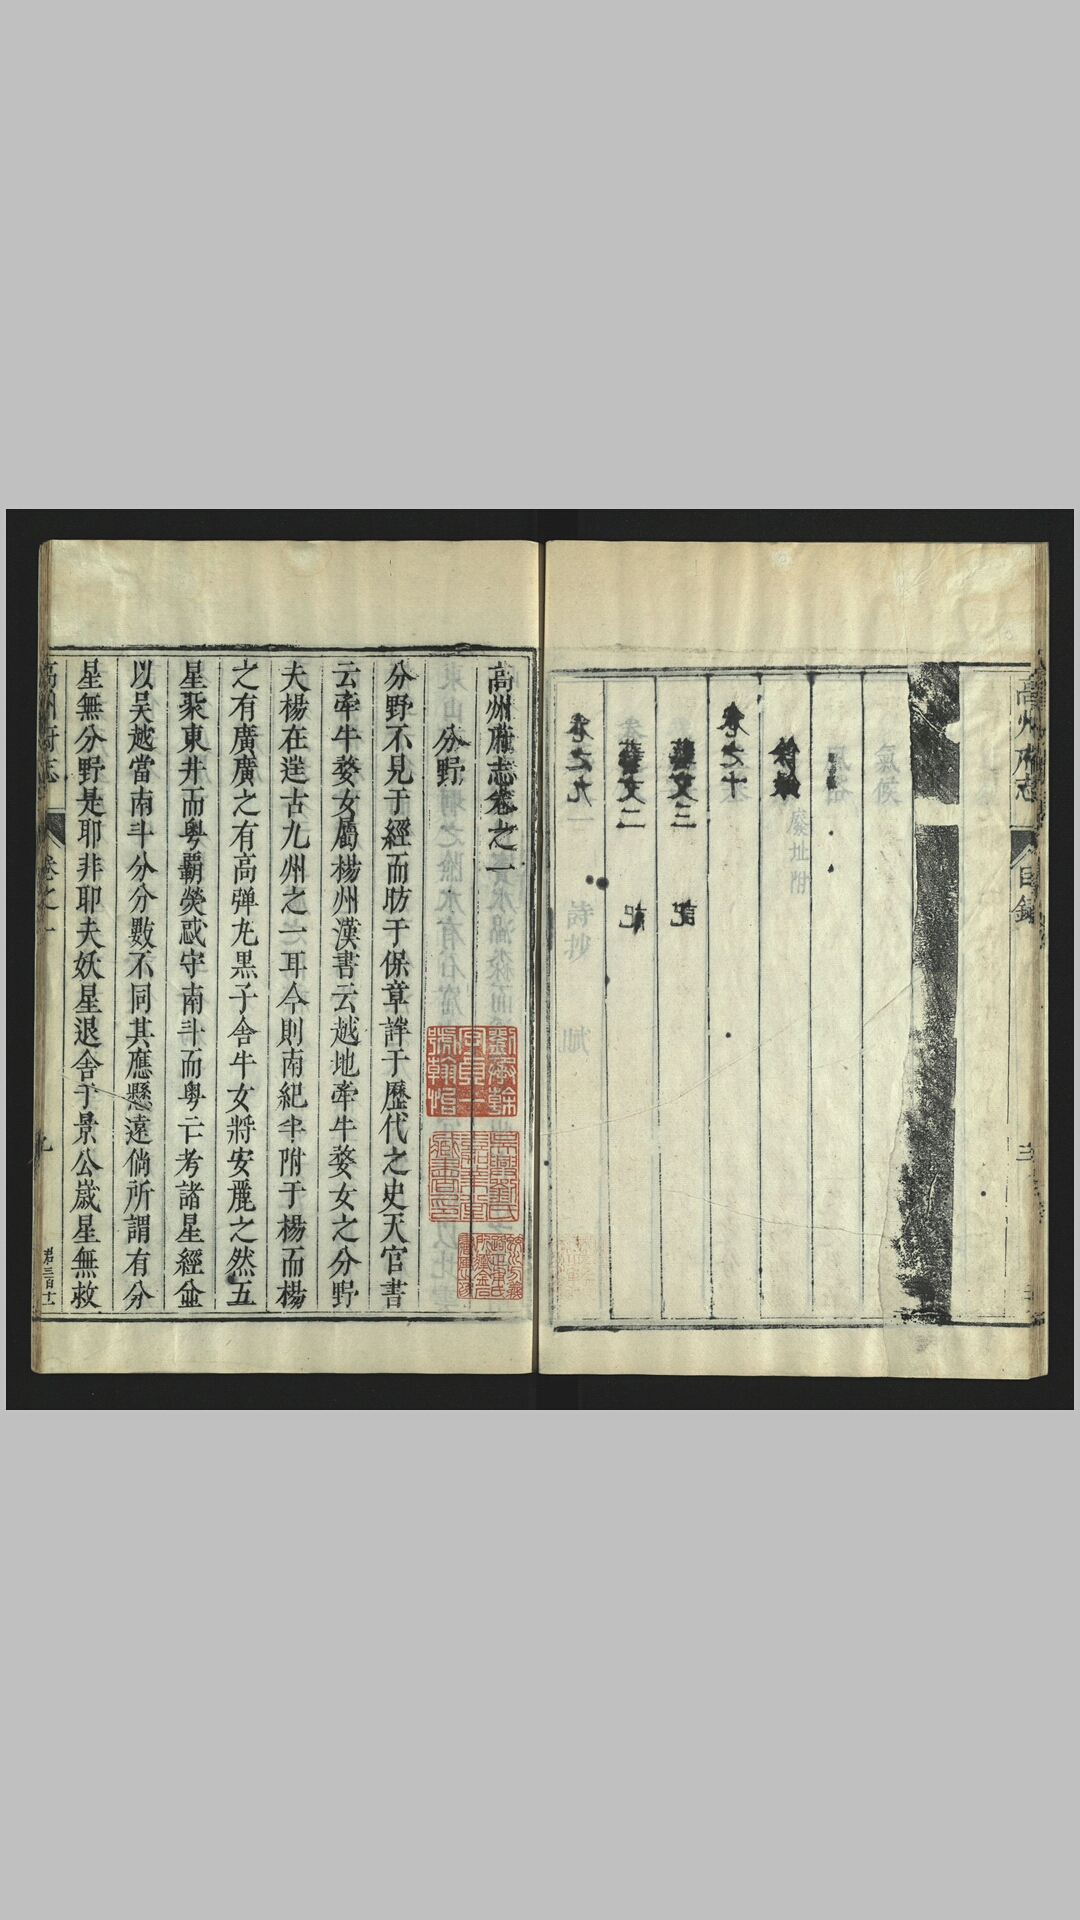 高州府志
目錄
三
卷之十
藝文三
記
藝文二
記
卷之九
高州府志卷之一
分野
分野不見于經而昉于保章詳于歷代之史天官書
云牽牛婺女屬楊州漢書云越地牽牛婺女之分野
夫楊在逹古九州之一耳今則南紀半附于楊而楊
之有廣廣之有高弹丸黒子舍牛女將安麗之然五
星聚東井而粤覇熒惑守南斗而粤亡考諸星經僉
以吴越當南斗分分數不同其應懸遠倘所謂有分
星無分野是耶非耶夫妖星退舍于景公歲星無救
高州府志
卷之一